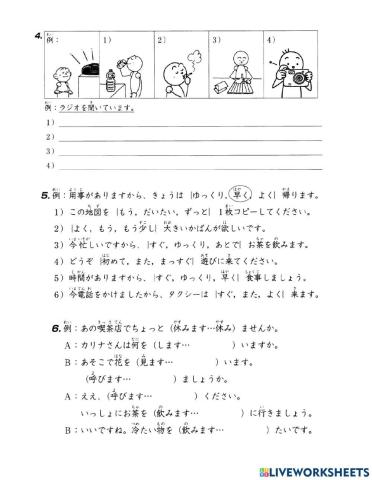 4.
例： 1） 2） 3） 4）
例：ラジオを聞いています。
1）
2）
3）
4）
5．例：用事がありますから、きょうは｛ゆっくり、早く、よく｝帰ります。
1）この地図を｛もう，だいたい，ずっと｝1枚コピーしてください。
2）｛よく，もう，もう少し｝大きいかばんが欲しいです。
3）今忙しいですから、｛すぐ，ゆっくり，あとで｝お茶を飲みます。
4）どうぞ｛初めて，また，まっすぐ｝遊びに来てください。
5）時間がありますから、｛すぐ，ゆっくり，早く｝食事しましょう。
6）今電話をかけましたから、タクシーは｛すぐ，また，よく｝来ます。
6．例：あの喫茶店でちょっと（休みます…休み）ませんか。
A：カリナさんは何を（します… ）いますか。
B：あそこで花を（見ます… ）います。
（呼びます… ）ましょうか。
A：ええ、（呼びます… ）ください。
いっしょにお茶を（飲みます… ）に行きましょう。
B：いいですね。冷たい物を（飲みます… ）たいです。
LIVEWORKSHEETS